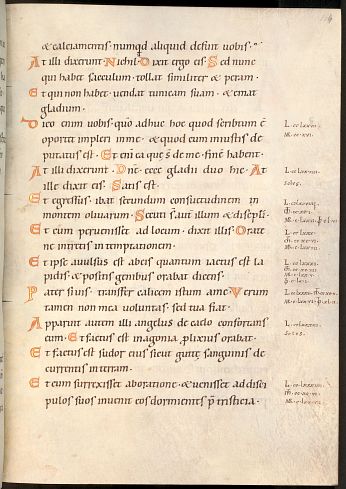 & calciamentis · numqd aliquid defuit vobis ·
At illi dixerunt · Nichil · Dixit ergo eis · Sed nunc
qui habet sacculum · tollat similiter & peram ·
Et qui non habet · uendat tunicam suam · & emat
gladium ·
Dico enim uobis · quo adhuc hoc quod scriptum ē
oportet impleri in me · & quod cum iniustis de
putatus est · Et eni ea quę s de me · finē habent ·
At illi dixerunt · Dne · ecce gladii duo hic · At
ille dixit eis · Satis est ·
Et egressus · ibat secundum consuetudinem in
montem oliuarum · Secuti s aut illum & discipli ·
Et cum peruenisset ad locum · dixit illis · Orate
ne intretis in temptationem ·
Et ipse auulsus est ab eis quantum iactus est la
pidis · & positis genibus orabat dicens ·
Pater si uis · transfer calicem istum a me · Verum
tamen non mea uoluntas · sed tua fiat ·
Apparuit autem illi angelus de caelo confortans
eum · Et factus est in agonia plixius orabat ·
Et factus est sudor eius sicut guttę sanguinis de
currentis in terram ·
Et cum surrexisset ab oratione · & uenisset ad disci
pulos suos inuenit eos dormientes p tristicia ·